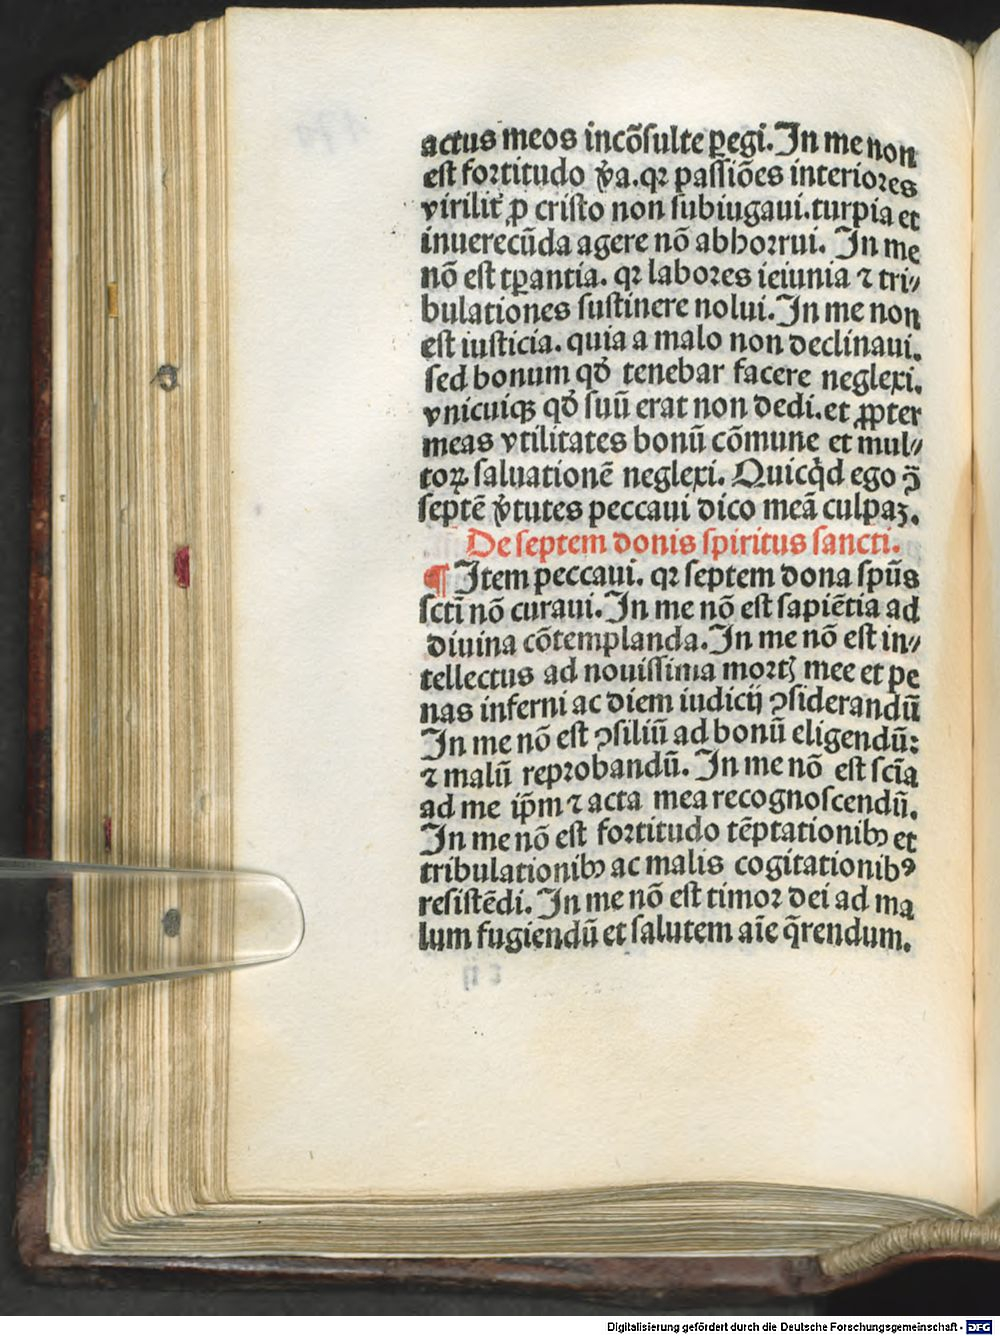 actus meos incōsulte ꝑegi. In me non
est fortitudo v̾a. qꝛ passiōes interiores
virilit᷑ ꝓ cristo non subiugaui. turpia et
inuerecūda agere nō abhorrui. In me
nō est tꝑantia. qꝛ labores ieiunia ⁊ tri⸗
bulationes sustinere nolui. In me non
est iusticia. quia a malo non declinaui.
sed bonum qđ tenebar facere neglexi.
vnicuiqꝫ qđ suū erat non dedi. et ꝓpter
meas vtilitates bonū cōmune et mul⸗
toꝝ saluationē neglexi. Quicq̇d ego ↄ̄
septē v̾tutes peccaui dico meā culpaꝫ.
De septem donis spiritus sancti.
¶ Item peccaui. qꝛ septem dona spūs
sctī nō curaui. In me nō est sapiētia ad
diuina cōtemplanda. In me nō est in⸗
tellectus ad nouissima mortꝭ mee et pe
nas inferni ac diem iudicij ꝯsiderandū
In me nō est ꝯsiliū ad bonū eligendū:
⁊ malū reprobandū. In me nō est scīa
ad me ip̄m ⁊ acta mea recognoscendū.
In me nō est fortitudo tēptationibꝰ et
tribulationibꝰ ac malis cogitationibꝰ
resistēdi. In me nō est timor dei ad ma
lum fugiendū et salutem aīe q̄rendum.
Digitalisierung gefördert durch die Deutsche Forschungsgemeinschaft - DFG